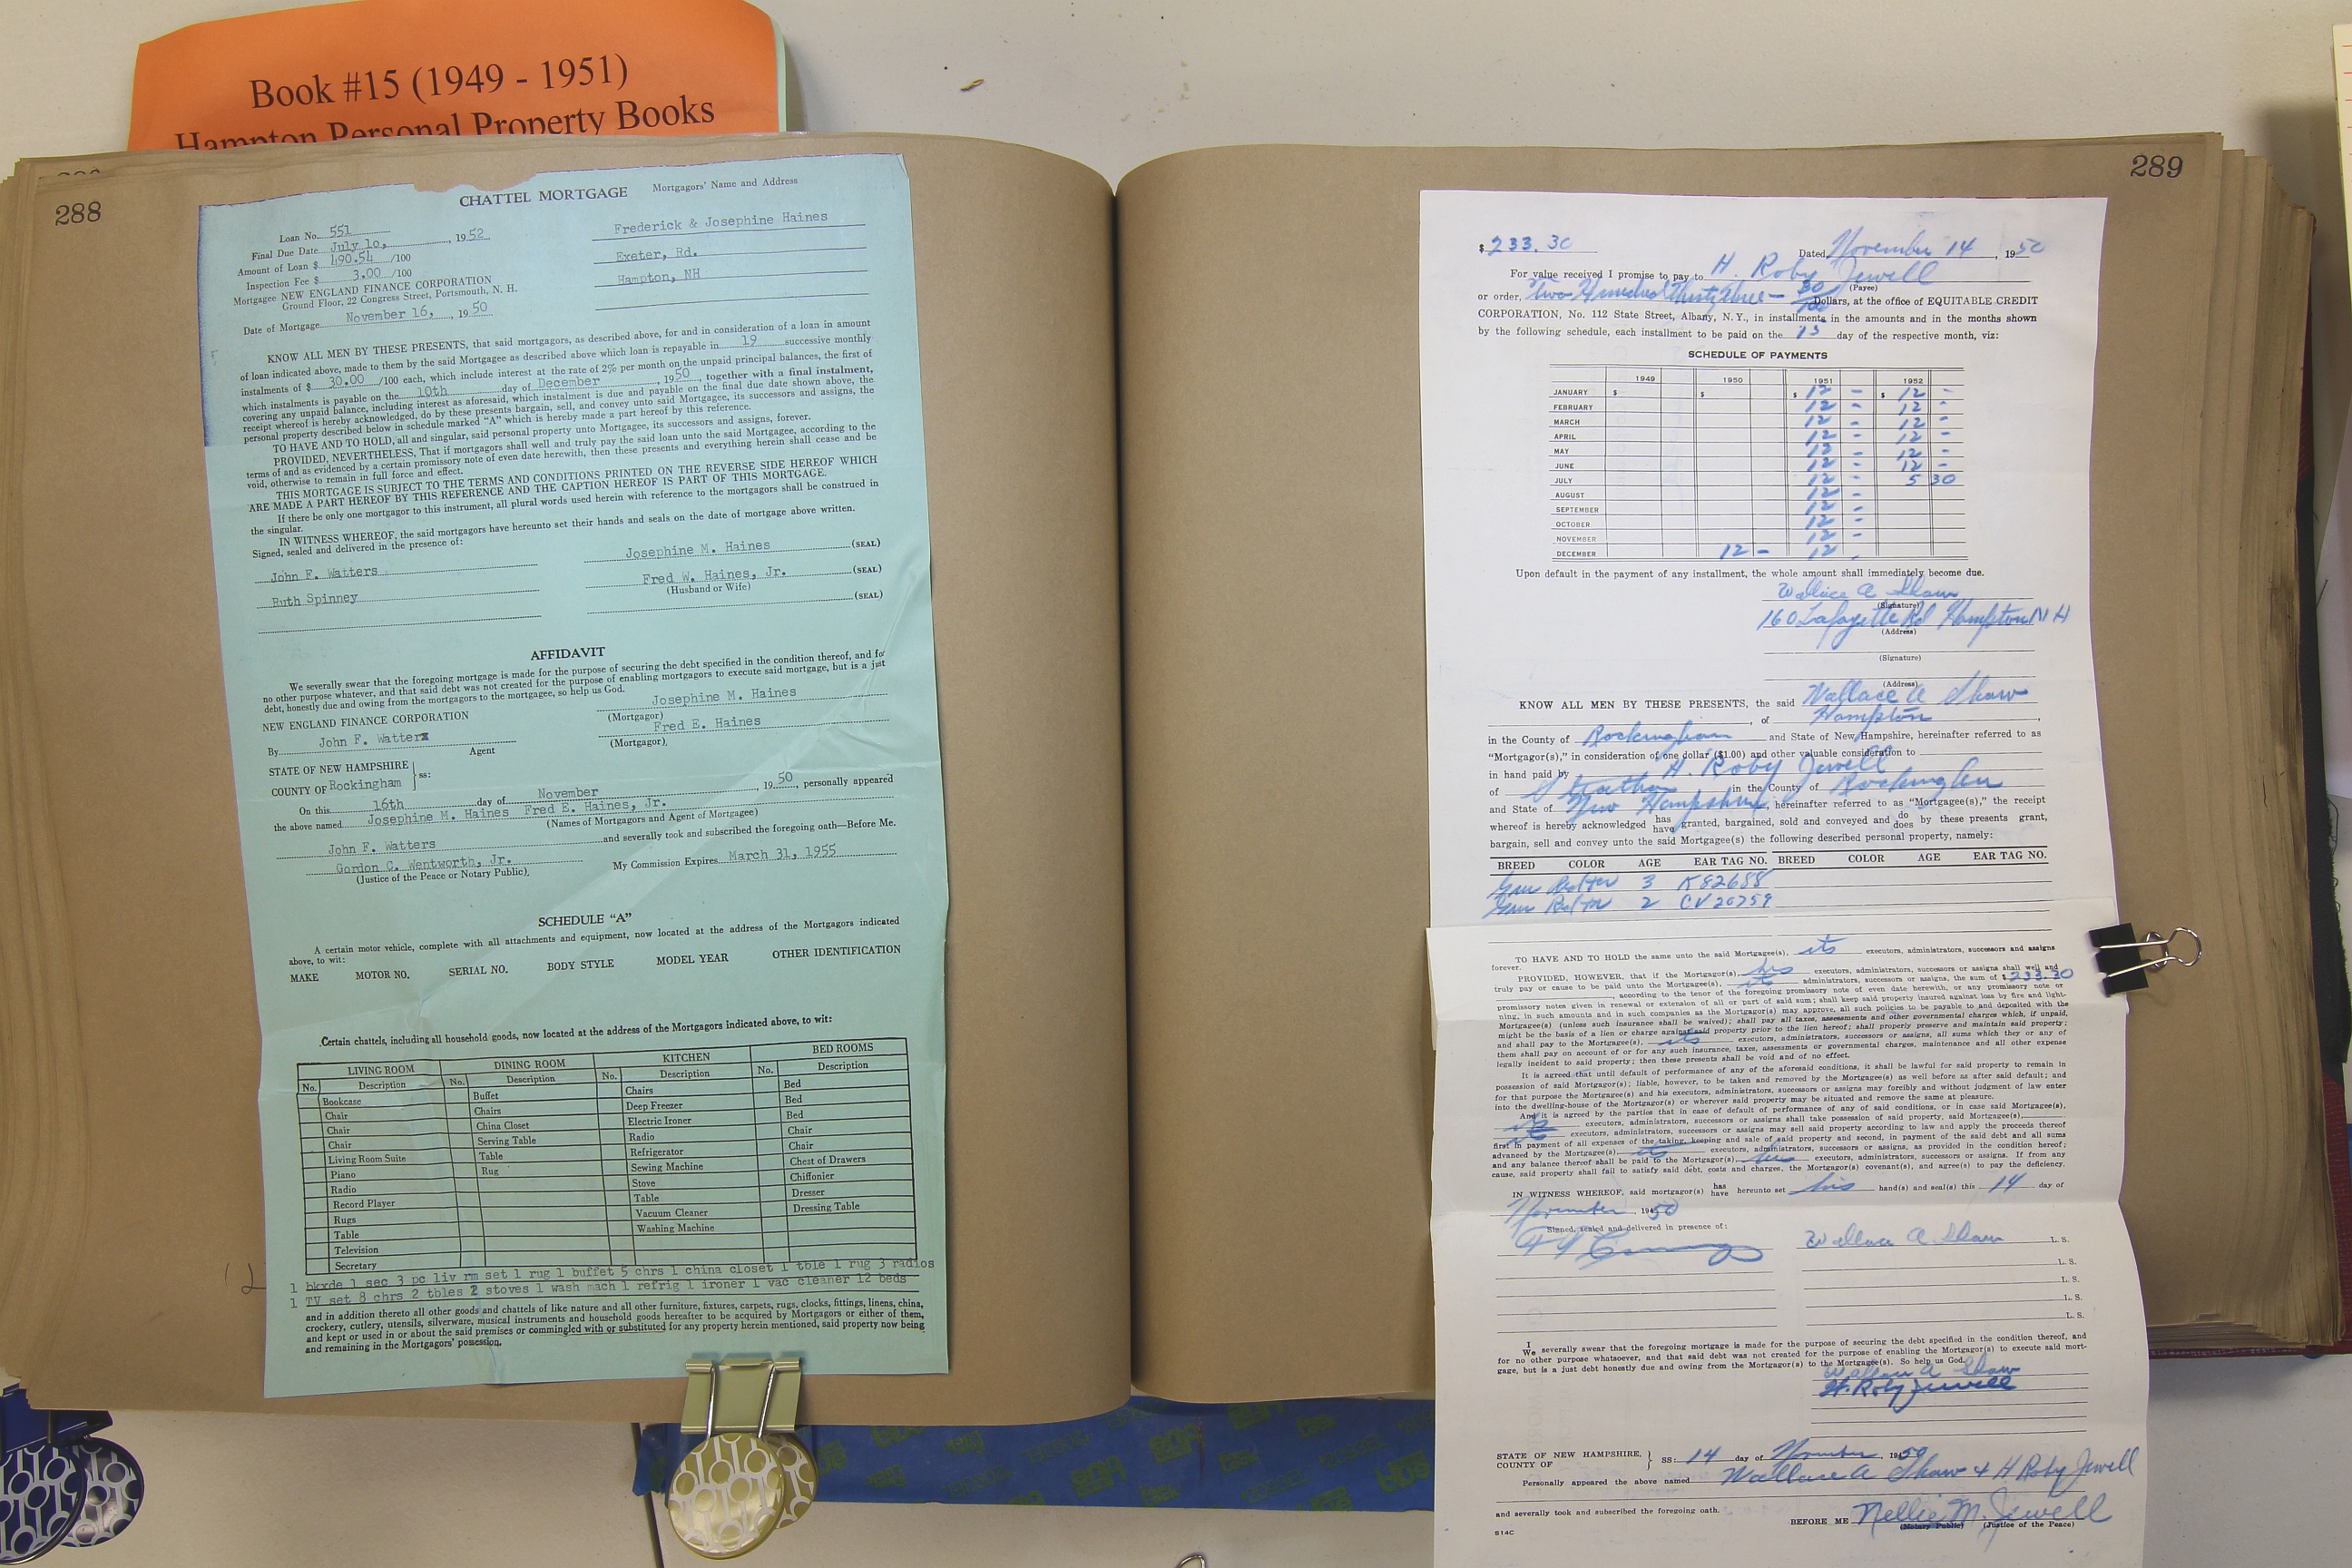 Book #15 (1949 - 1951)
Hampton Personal Property Books
288
CHATTEL MORTGAGE
Mortgagors' Name and Address
Loan No. 551
Final Due Date July 10, , 1952
Amount of Loan $ 490.54 /100
Inspection Fee $ 3.00 /100
Mortgagee NEW ENGLAND FINANCE CORPORATION
Ground Floor, 22 Congress Street, Portsmouth, N. H.
Date of Mortgage November 16, , 1950
Frederick & Josephine Haines
Exeter, Rd.
Hampton, NH
KNOW ALL MEN BY THESE PRESENTS, that said mortgagors, as described above, for and in consideration of a loan in amount
of loan indicated above, made to them by the said Mortgagee as described above which loan is repayable in 19 successive monthly
instalments of $ 30.00 /100 each, which include interest at the rate of 2% per month on the unpaid principal balances, the first of
which instalments is payable on the 10th day of December , 1950 , together with a final instalment,
covering any unpaid balance, including interest as aforesaid, which instalment is due and payable on the final due date shown above, the
receipt whereof is hereby acknowledged, do by these presents bargain, sell, and convey unto said Mortgagee, its successors and assigns, the
personal property described below in schedule marked "A" which is hereby made a part hereof by this reference.
TO HAVE AND TO HOLD, all and singular, said personal property unto Mortgagee, its successors and assigns, forever.
PROVIDED, NEVERTHELESS, That if mortgagors shall well and truly pay the said loan unto the said Mortgagee, according to the
terms of and as evidenced by a certain promissory note of even date herewith, then these presents and everything herein shall cease and be
void, otherwise to remain in full force and effect.
THIS MORTGAGE IS SUBJECT TO THE TERMS AND CONDITIONS PRINTED ON THE REVERSE SIDE HEREOF WHICH
ARE MADE A PART HEREOF BY THIS REFERENCE AND THE CAPTION HEREOF IS PART OF THIS MORTGAGE.
If there be only one mortgagor to this instrument, all plural words used herein with reference to the mortgagors shall be construed in
the singular.
IN WITNESS WHEREOF, the said mortgagors have hereunto set their hands and seals on the date of mortgage above written.
Signed, sealed and delivered in the presence of:
John F. Watters
Ruth Spinney
Josephine M. Haines (SEAL)
Fred W. Haines, Jr. (SEAL)
(Husband or Wife)
(SEAL)
AFFIDAVIT
We severally swear that the foregoing mortgage is made for the purpose of securing the debt specified in the condition thereof, and for
no other purpose whatever, and that said debt was not created for the purpose of enabling mortgagors to execute said mortgage, but is a just
debt, honestly due and owing from the mortgagors to the mortgagee, so help us God.
NEW ENGLAND FINANCE CORPORATION
By John F. Watters
Agent
Josephine M. Haines
(Mortgagor)
Fred E. Haines
(Mortgagor)
STATE OF NEW HAMPSHIRE
COUNTY OF Rockingham } ss:
On this 16th day of November , 1950 , personally appeared
the above named Josephine M. Haines Fred E. Haines, Jr.
(Names of Mortgagors and Agent of Mortgagee)
John F. Watters and severally took and subscribed the foregoing oath—Before Me.
Gordon C. Wentworth, Jr.
(Justice of the Peace or Notary Public)
My Commission Expires March 31, 1955
SCHEDULE "A"
A certain motor vehicle, complete with all attachments and equipment, now located at the address of the Mortgagors indicated
above, to wit:
MAKE MOTOR NO. SERIAL NO. BODY STYLE MODEL YEAR OTHER IDENTIFICATION
Certain chattels, including all household goods, now located at the address of the Mortgagors indicated above, to wit:
LIVING ROOM DINING ROOM KITCHEN BED ROOMS
No. Description No. Description No. Description No. Description
Bookcase Buffet Chairs Bed
Chair Chairs Deep Freezer Bed
Chair China Closet Electric Ironer Bed
Chair Serving Table Radio Chair
Living Room Suite Table Refrigerator Chair
Piano Rug Sewing Machine Chest of Drawers
Radio Stove Chiffonier
Record Player Table Dresser
Rugs Vacuum Cleaner Dressing Table
Table Washing Machine
Television
Secretary
1 bkxde 1 sec 3 pc liv rm set 1 rug 1 buffet 5 chrs 1 china closet 1 tble 1 rug 3 radios
1 TV set 8 chrs 2 tbles 2 stoves 1 wash mach 1 refrig 1 ironer 1 vac cleaner 12 beds
and in addition thereto all other goods and chattels of like nature and all other furniture, fixtures, carpets, rugs, clocks, fittings, linens, china,
crockery, cutlery, utensils, silverware, musical instruments and household goods hereafter to be acquired by Mortgagors or either of them,
and kept or used in or about the said premises or commingled with or substituted for any property herein mentioned, said property now being
and remaining in the Mortgagors' possession.
289
$ 233.30 Dated November 14 , 1950
For value received I promise to pay to H. Roby Jewell
(Payee)
or order, Two Hundred Thirty three — 30/100 Dollars, at the office of EQUITABLE CREDIT
CORPORATION, No. 112 State Street, Albany, N. Y., in installments in the amounts and in the months shown
by the following schedule, each installment to be paid on the 13 day of the respective month, viz:
SCHEDULE OF PAYMENTS
1949 1950 1951 1952
JANUARY $ $ $ 12 - $ 12 -
FEBRUARY 12 - 12 -
MARCH 12 - 12 -
APRIL 12 - 12 -
MAY 12 - 12 -
JUNE 12 - 12 -
JULY 12 - 5 30
AUGUST 12 -
SEPTEMBER 12 -
OCTOBER 12 -
NOVEMBER 12 -
DECEMBER 12 - 12
Upon default in the payment of any installment, the whole amount shall immediately become due.
Wallace A Shaw
(Signature)
160 Lafayette Rd Hampton N H
(Address)
(Signature)
(Address)
KNOW ALL MEN BY THESE PRESENTS, the said Wallace A Shaw
, of Hampton ,
in the County of Rockingham and State of New Hampshire, hereinafter referred to as
"Mortgagor(s)," in consideration of one dollar ($1.00) and other valuable consideration to
in hand paid by H. Roby Jewell
of Stratham in the County of Rockingham
and State of New Hampshire, hereinafter referred to as "Mortgagee(s)," the receipt
whereof is hereby acknowledged has have granted, bargained, sold and conveyed and do does by these presents grant,
bargain, sell and convey unto the said Mortgagee(s) the following described personal property, namely:
BREED COLOR AGE EAR TAG NO. BREED COLOR AGE EAR TAG NO.
3 K82688
2 CV20759
TO HAVE AND TO HOLD the same unto the said Mortgagee(s), its executors, administrators, successors and assigns
forever.
PROVIDED, HOWEVER, that if the Mortgagor(s) his executors, administrators, successors or assigns shall well and
truly pay or cause to be paid unto the Mortgagee(s), its administrators, successors or assigns, the sum of $ 233.30
, according to the tenor of the foregoing promissory note of even date herewith, or any promissory note or
promissory notes given in renewal or extension of all or part of said sum; shall keep said property insured against loss by fire and light-
ning, in such amounts and in such companies as the Mortgagee(s) may approve, all such policies to be payable to and deposited with the
Mortgagee(s) (unless such insurance shall be waived); shall pay all taxes, assessments and other governmental charges which, if unpaid,
might be the basis of a lien or charge against said property prior to the lien hereof; shall properly preserve and maintain said property;
and shall pay to the Mortgagee(s), its executors, administrators, successors or assigns, all sums which they or any of
them shall pay on account of or for any such insurance, taxes, assessments or governmental charges, maintenance and all other expense
legally incident to said property; then these presents shall be void and of no effect.
It is agreed that until default of performance of any of the aforesaid conditions, it shall be lawful for said property to remain in
possession of said Mortgagor(s); liable, however, to be taken and removed by the Mortgagee(s) as well before as after said default; and
for that purpose the Mortgagee(s) and his executors, administrators, successors or assigns may forcibly and without judgment of law enter
into the dwelling-house of the Mortgagor(s) or wherever said property may be situated and remove the same at pleasure.
And it is agreed by the parties that in case of default of performance of any of said conditions, or in case said Mortgagee(s),
its executors, administrators, successors or assigns shall take possession of said property, said Mortgagee(s),
its executors, administrators, successors or assigns may sell said property according to law and apply the proceeds thereof
first in payment of all expenses of the taking, keeping and sale of said property and second, in payment of the said debt and all sums
advanced by the Mortgagee(s), its executors, administrators, successors or assigns, as provided in the condition hereof;
and any balance thereof shall be paid to the Mortgagor(s), his executors, administrators, successors or assigns. If from any
cause, said property shall fail to satisfy said debt, costs and charges, the Mortgagor(s) covenant(s), and agree(s) to pay the deficiency.
IN WITNESS WHEREOF, said mortgagor(s) has have hereunto set his hand(s) and seal(s) this 14 day of
November , 1950
Signed, sealed and delivered in presence of:
Wallace A. Shaw L. S.
L. S.
L. S.
L. S.
L. S.
I We severally swear that the foregoing mortgage is made for the purpose of securing the debt specified in the condition thereof, and
for no other purpose whatsoever, and that said debt was not created for the purpose of enabling the Mortgagor(s) to execute said mort-
gage, but is a just debt honestly due and owing from the Mortgagor(s) to the Mortgagee(s). So help us God.
Wallace A Shaw
H. Roby Jewell
STATE OF NEW HAMPSHIRE,
COUNTY OF } SS: 14 day of November , 1950
Personally appeared the above named Wallace A Shaw & H Roby Jewell
and severally took and subscribed the foregoing oath.
BEFORE ME Nellie M. Jewell
(Notary Public) (Justice of the Peace)
S14C